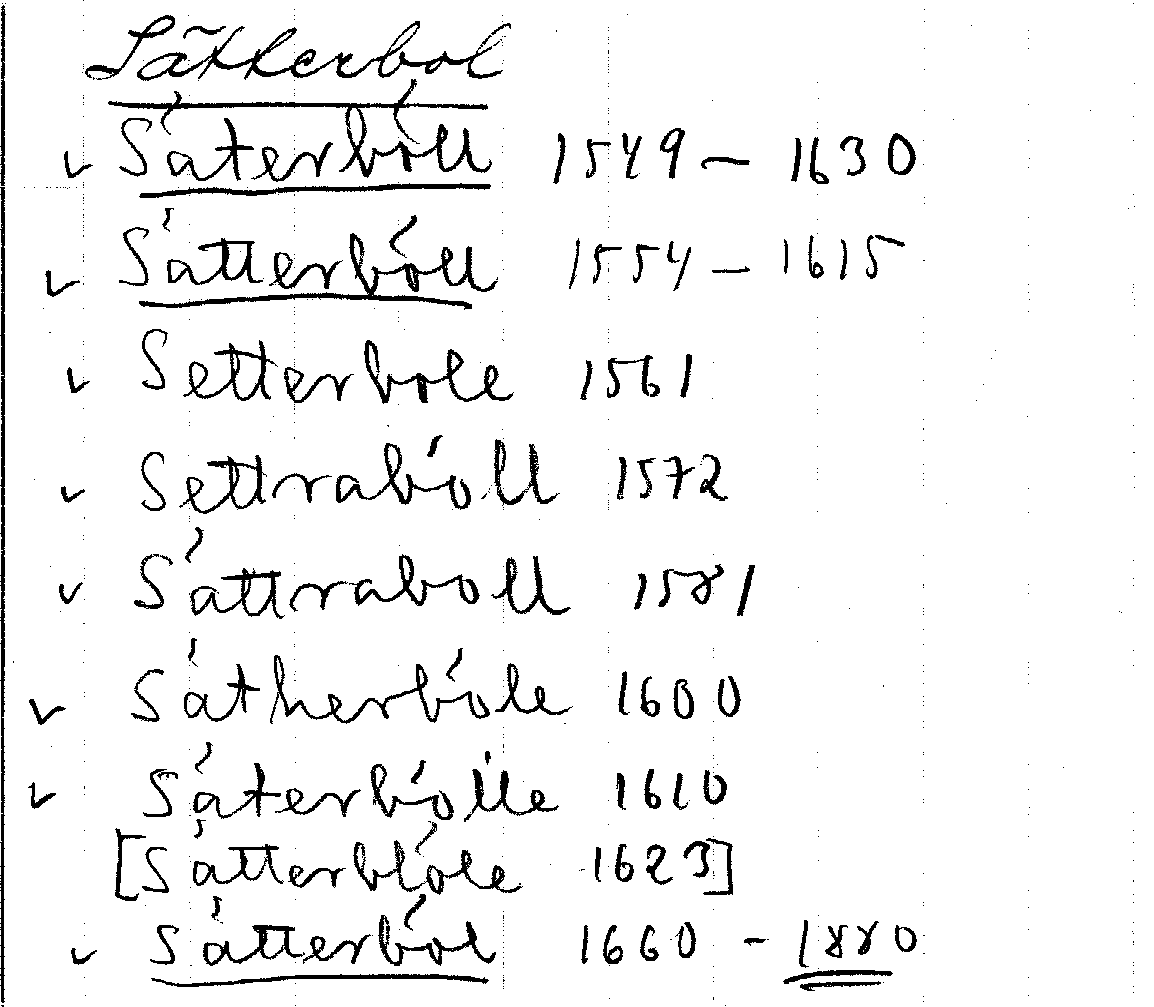 Sätterbol
✓ Sáterbóll 1549 – 1630
✓ Sátterbóll 1554 – 1615
✓ Setterbole 1561
✓ Settrabóll 1572
✓ Sáttraboll 1581
✓ Sátherbóle 1600
✓ Sáterbólle 1610
[Sátterblóle 1623]
✓ Sátterból 1660 - 1880